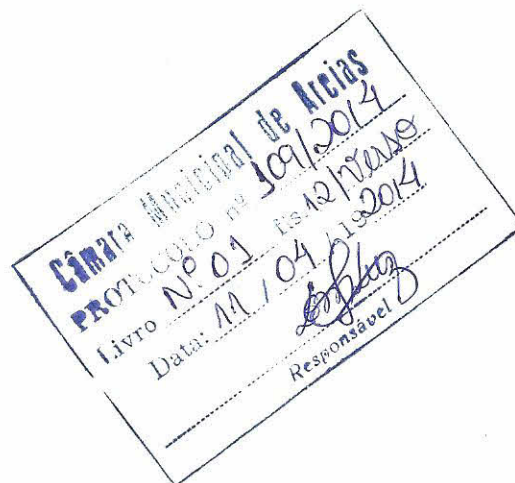 Câmara Municipal de Areias
PROTOCOLO nº 109/2014
Livro Nº 01 Fls 12/Verso
Data: 11 / 04 / 192014
Responsável